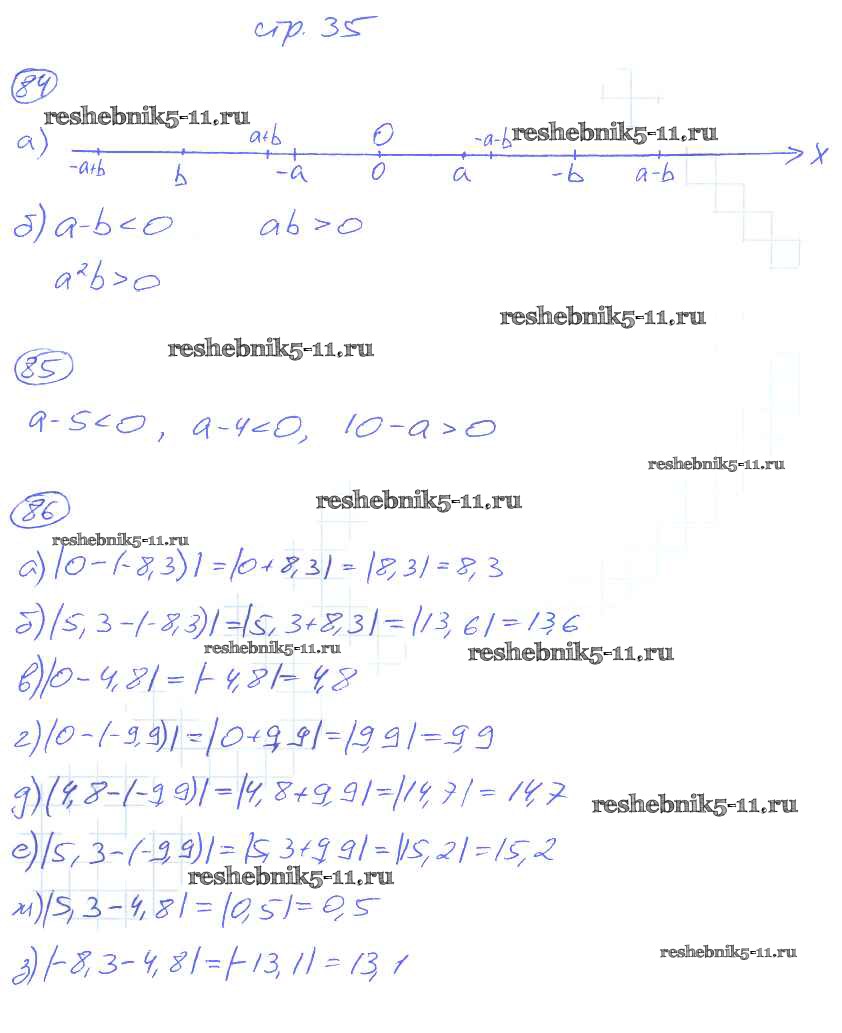 стр. 35
84
reshebnik5-11.ru
reshebnik5-11.ru
а) a+b 0 -a-b
-a+b b -a 0 a -b a-b x
б) a-b<0 ab>0
a²b>0
reshebnik5-11.ru
reshebnik5-11.ru
85
a-5<0, a-4<0, 10-a>0
reshebnik5-11.ru
reshebnik5-11.ru
86
reshebnik5-11.ru
а) |0-(-8,3)|=|0+8,3|=|8,3|=8,3
б) |5,3-(-8,3)|=|5,3+8,3|=|13,6|=13,6
reshebnik5-11.ru
reshebnik5-11.ru
в) |0-4,8|=|-4,8|=4,8
г) |0-(-9,9)|=|0+9,9|=|9,9|=9,9
д) |4,8-(-9,9)|=|4,8+9,9|=|14,7|=14,7
reshebnik5-11.ru
е) |5,3-(-9,9)|=|5,3+9,9|=|15,2|=15,2
reshebnik5-11.ru
ж) |5,3-4,8|=|0,5|=0,5
reshebnik5-11.ru
з) |-8,3-4,8|=|-13,1|=13,1